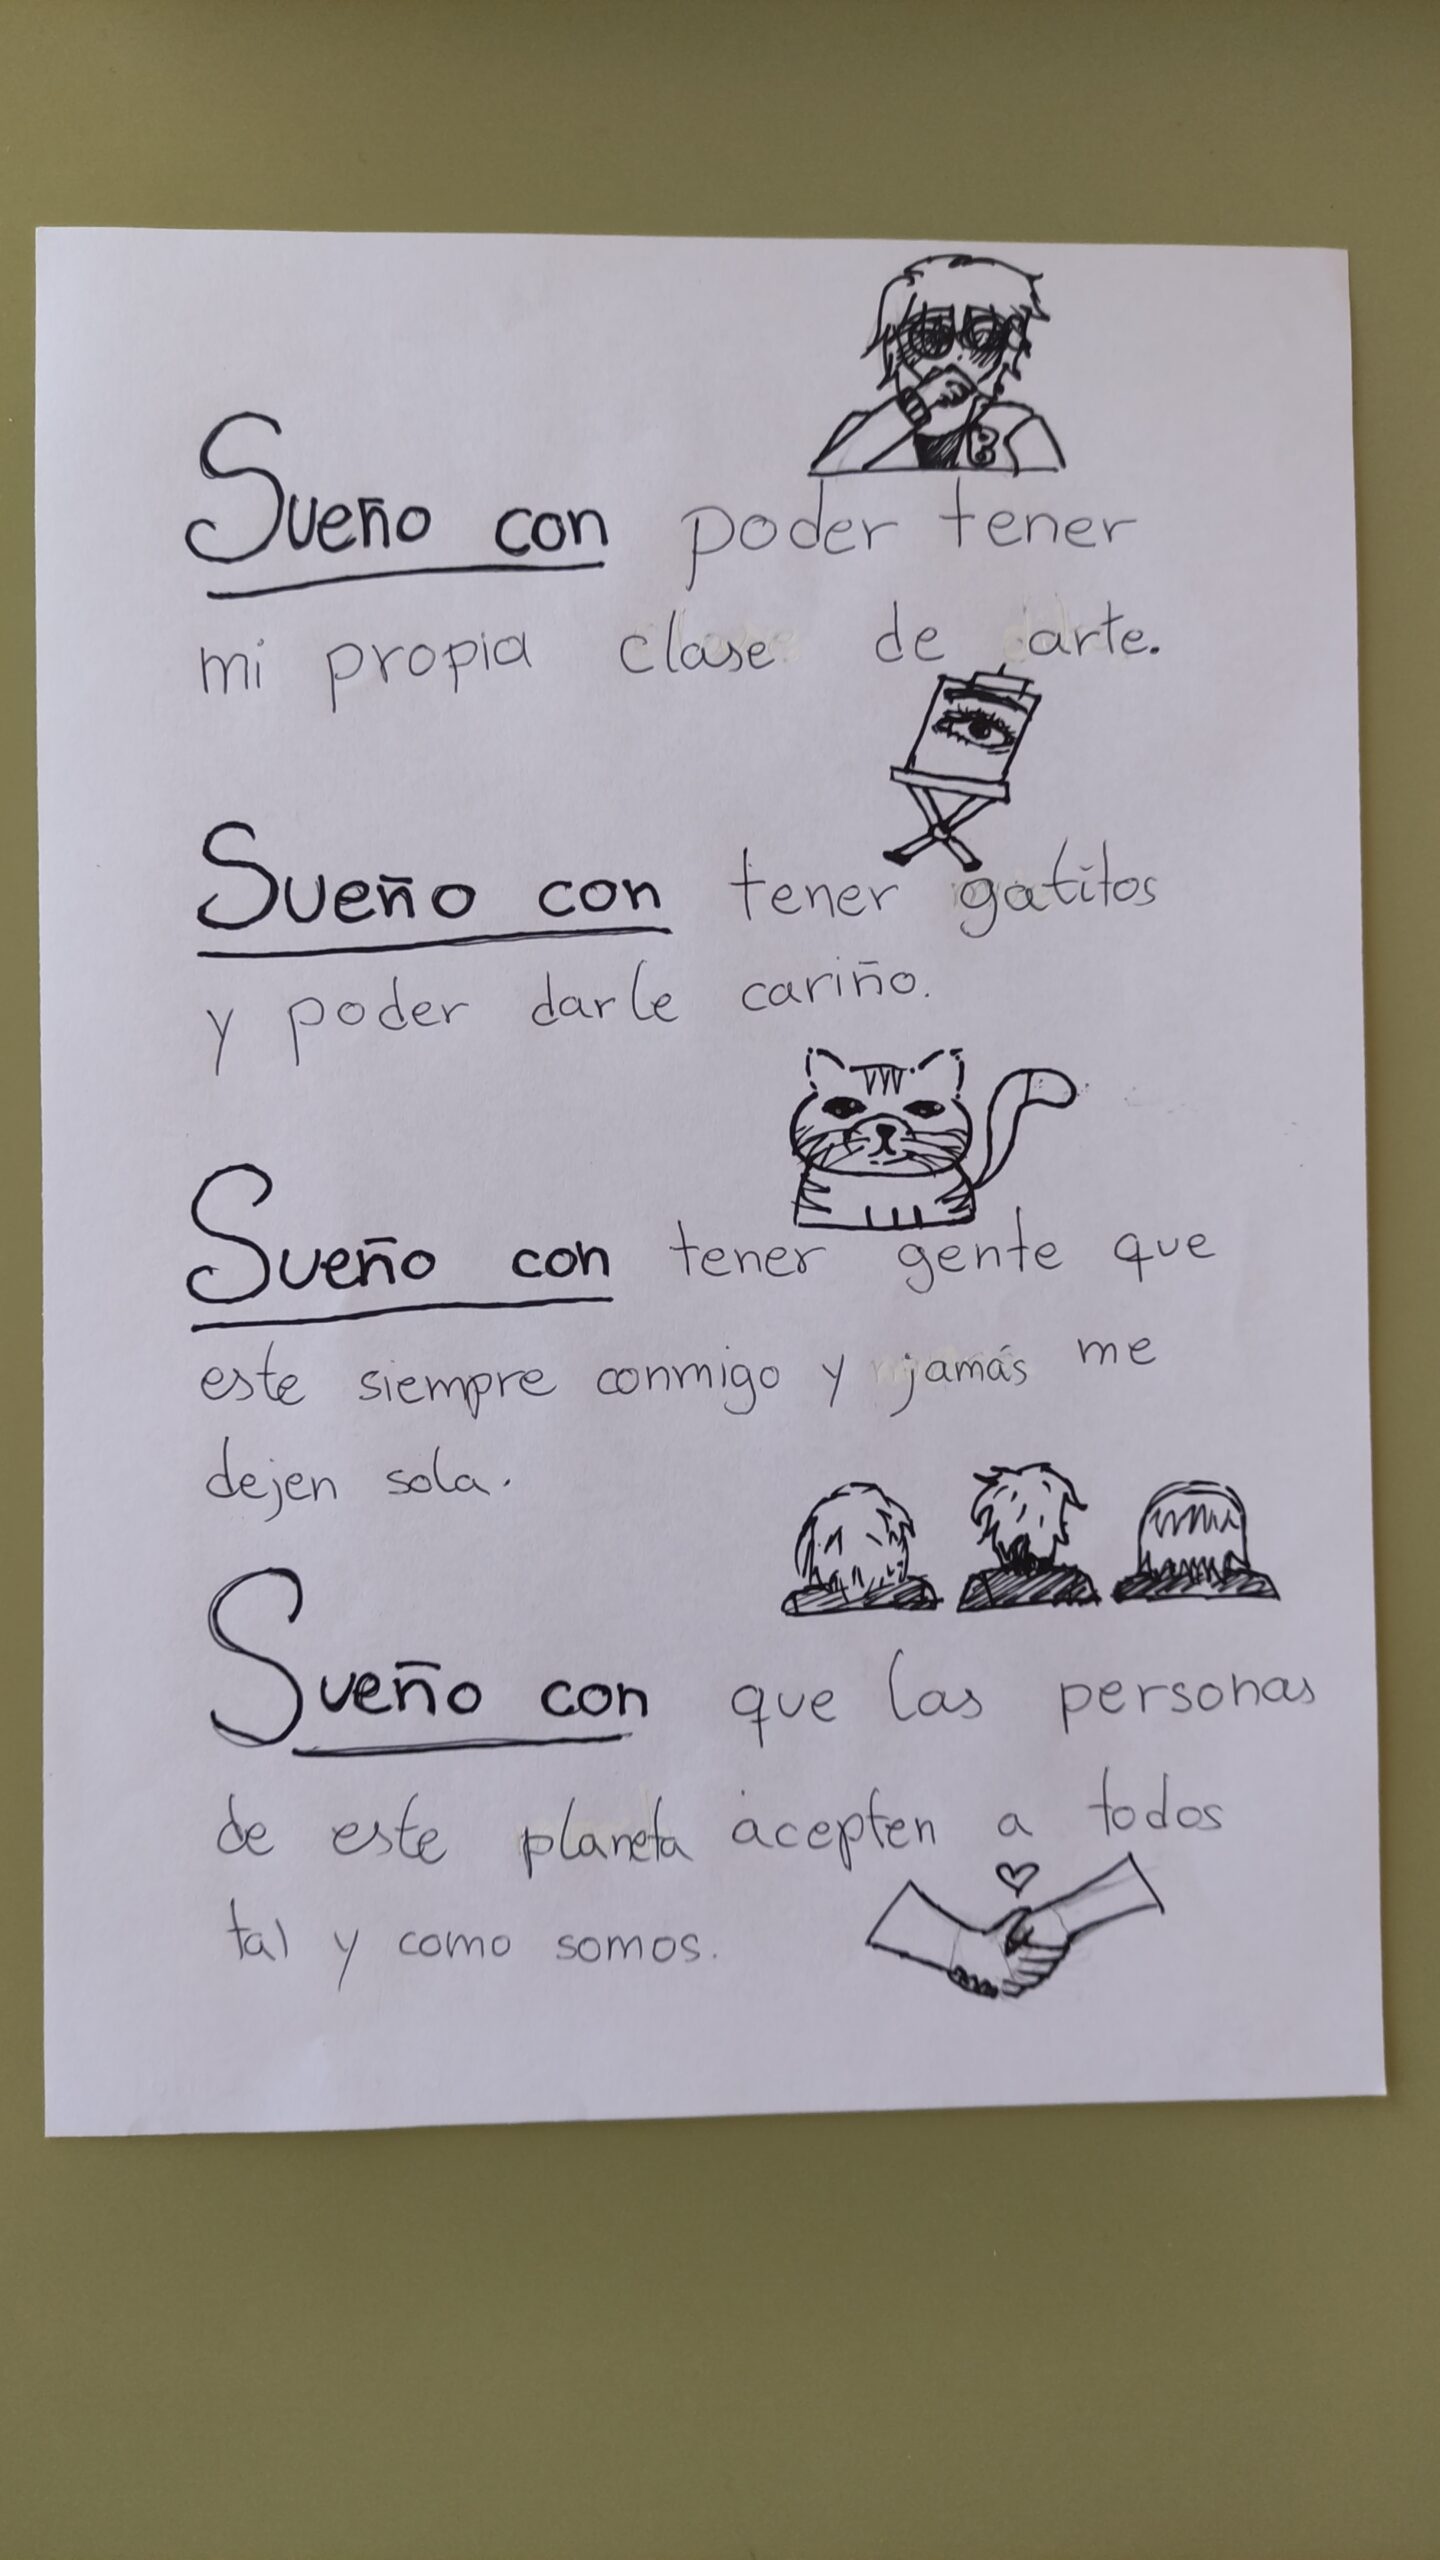 Sueño con poder tener
mi propia clase de arte.
Sueño con tener gatitos
y poder darle cariño.
Sueño con tener gente que
este siempre conmigo y jamás me
dejen sola.
Sueño con que las personas
de este planeta acepten a todos
tal y como somos.